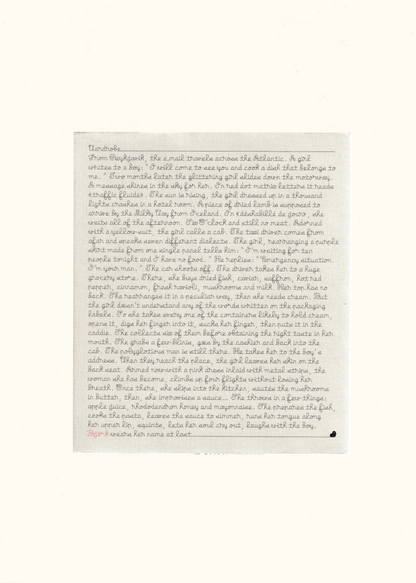 Wardrobe
From Reykjavik, the e.mail travels across the Atlantic. A girl
writes to a boy: "I will come to see you and cook a dish that belongs to
me." Two months later the glittering girl slides down the motorway.
A message shines in the sky for her. In red dot matrix letters it reads
«traffic fluide». The sun is rising, the girl dressed up in a thousand
lights crashes in a hotel room. A piece of dried lamb is supposed to
arrive by the Milky Way from Iceland. In «déshabillé de gown», she
waits all of the afternoon. Six O'clock and still no meat. Adorned
with a yellow-suit, the girl calls a cab. The taxi driver comes from
afar and speaks seven different dialects. The girl, rearranging a purple
skirt made from one single panel tells him: "I'm waiting for ten
people tonight and I have no food." He replies: "Emergency situation.
I'm your man." The car shoots off. The driver takes her to a huge
grocery store. There, she buys dried fish, cavish, saffron, hot red
pepper, cinnamon, fresh ravioli, mushrooms and milk. Her top has no
back. She rearranges it in a peculiar way, then she needs cream. But
the girl doesn't understand any of the words written on the packaging
labels. So she takes every one of the containers likely to hold cream,
opens it, digs her finger into it, sucks her finger, then puts it in the
caddie. She collects six of them before obtaining the right taste in her
mouth. She grabs a few blinis, goes by the cashier and back into the
cab. The polyglottous man is still there. He takes her to the boy's
address. When they reach the place, the girl leaves her skin on the
back seat. Armed now with a pink dress inlaid with metal strins, the
woman she has become, climbs up four flights without losing her
breath. Once there, she slips into the kitchen, sautés the mushrooms
in butter, then, she improvises a sauce... She throws in a few things:
apple juice, rhododendron honey and mayonnaise. She prepares the fish,
cooks the pasta, leaves the sauce to simmer, runs her tongue along
her upper lip, squints, lets her soul cry out, laughs with the boy.
wears her name at last